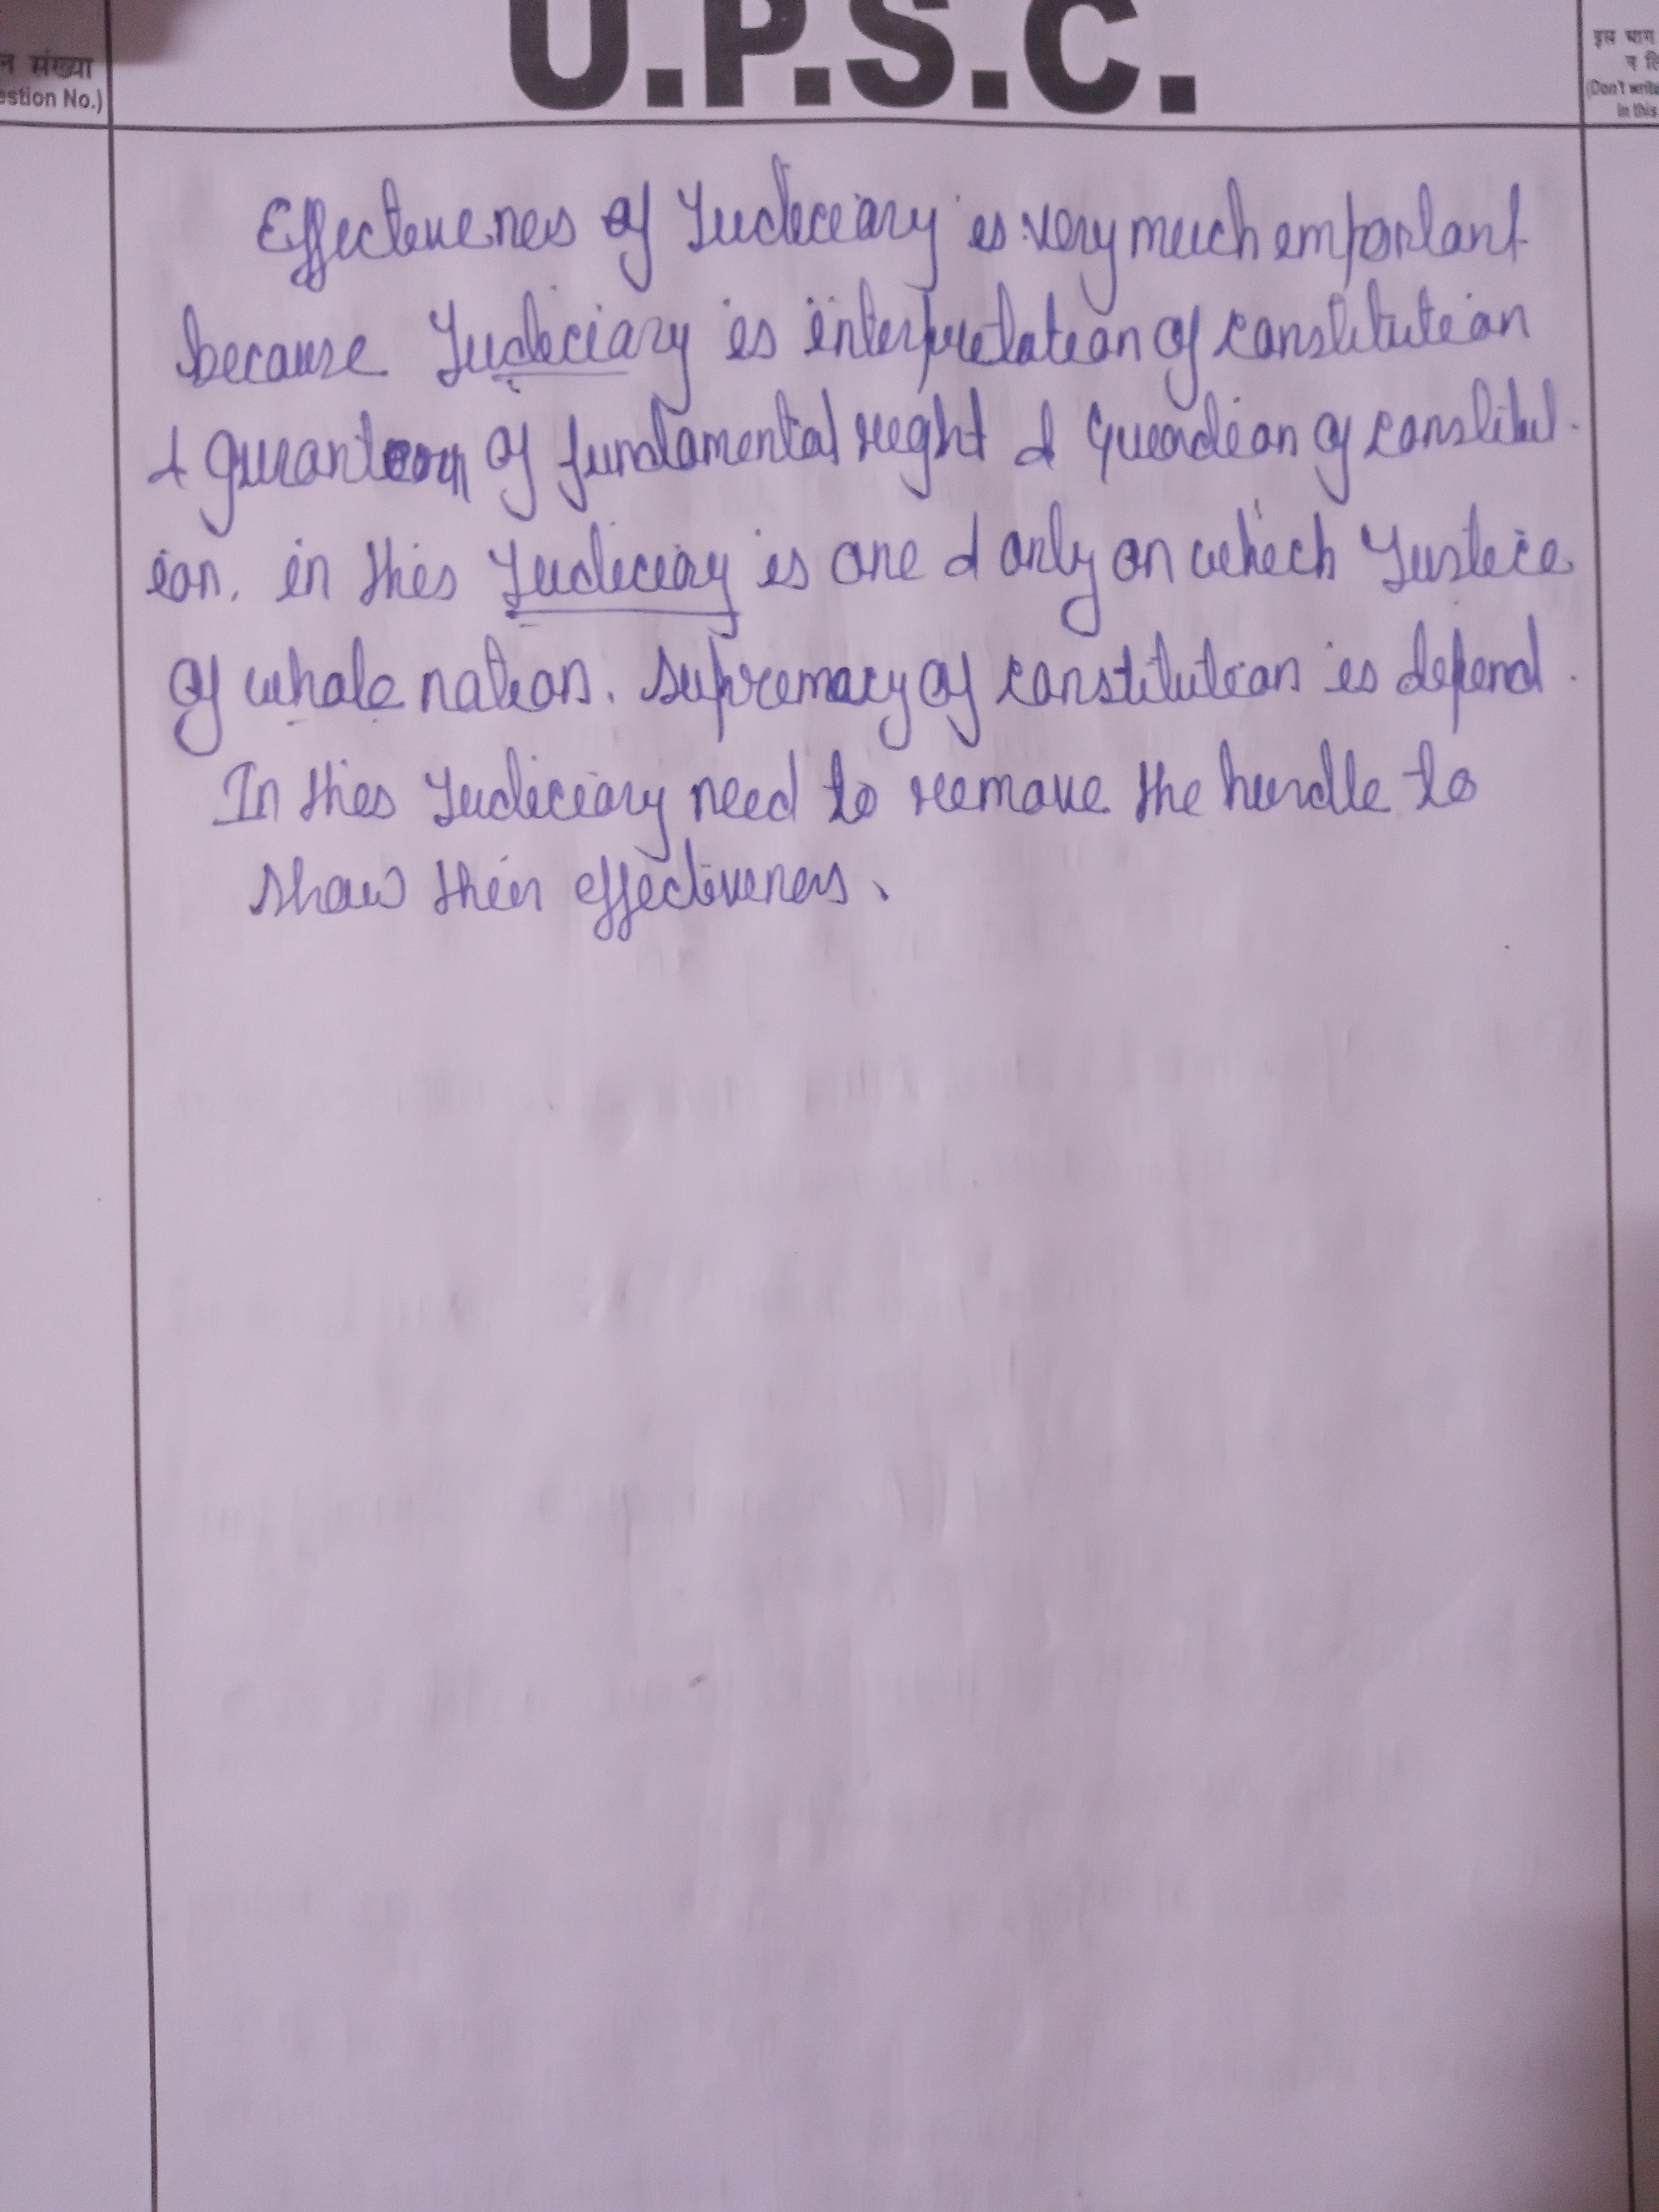 न संख्या
estion No.)
U.P.S.C.
इस भाग
(Don't write
in this
Effectiveness of Judiciary is very much important
because Judiciary is interpretation of constitution
& of fundamental right & Guardian of constitut-
ion. in this Judiciary is one & only on which Justice
of whole nation. supremacy of constitution is depend.
In this Judiciary need to remove the hurdle to
show their effectiveness.